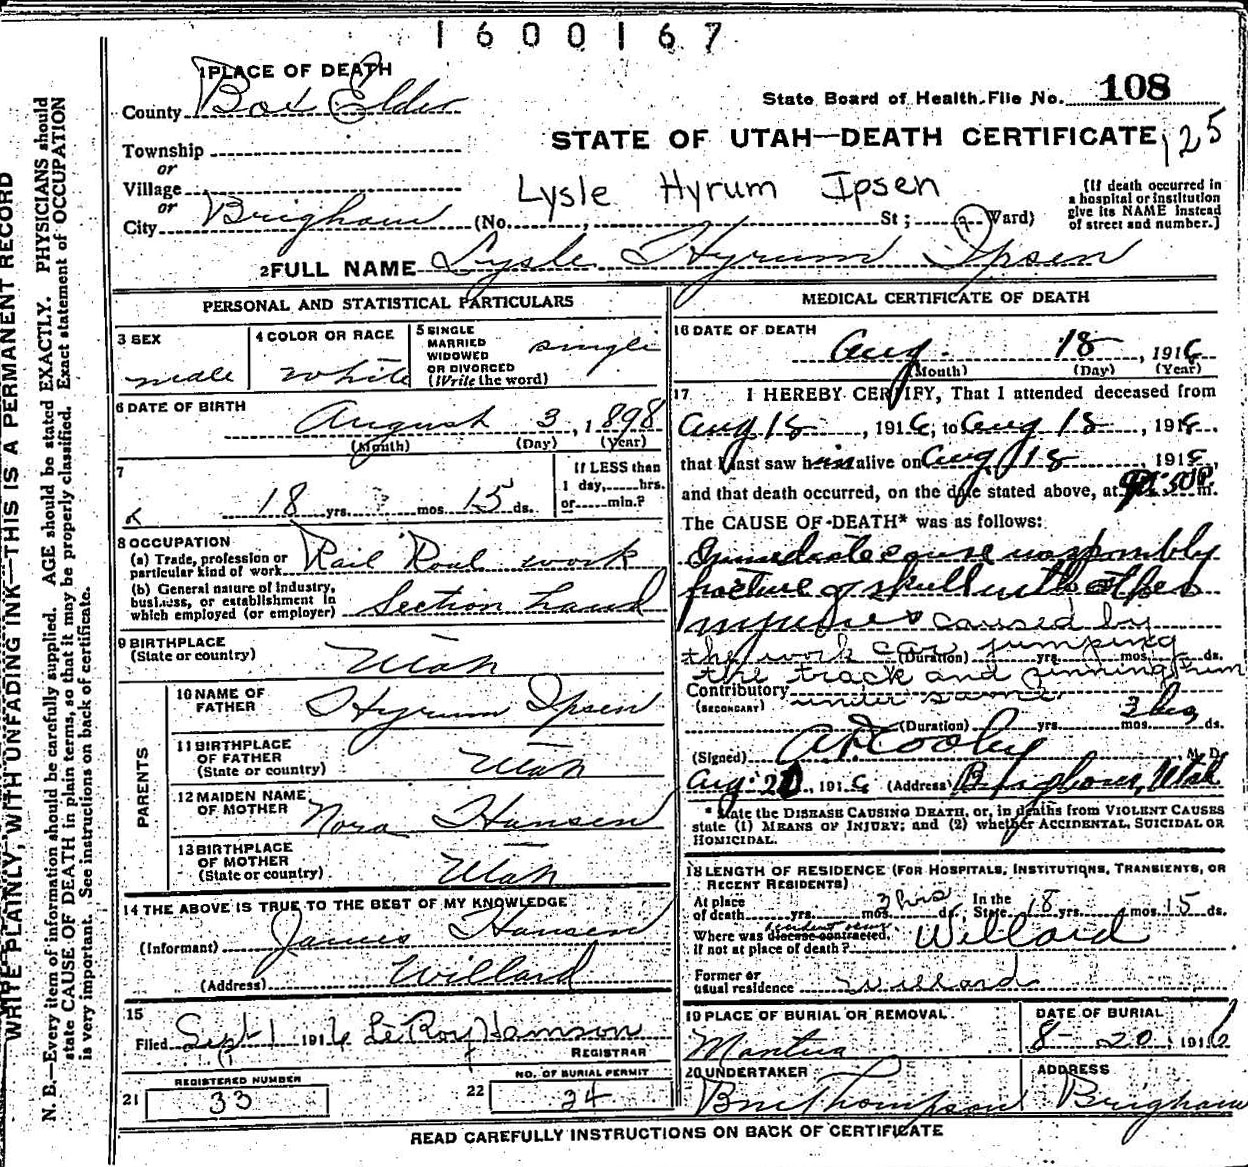 1600167
1 PLACE OF DEATH
County Box Elder
State Board of Health File No. 108
STATE OF UTAH—DEATH CERTIFICATE 125
Township
or
Village
or
City Brigham (No. St; Ward)
Lysle Hyrum Ipsen
(If death occurred in
a hospital or institution
give its NAME instead
of street and number.)
2 FULL NAME Lysle Hyrum Ipsen
PERSONAL AND STATISTICAL PARTICULARS
3 SEX
male
4 COLOR OR RACE
white
5 SINGLE
MARRIED
WIDOWED
OR DIVORCED
(Write the word)
single
6 DATE OF BIRTH
August 3, 1898
(Month) (Day) (Year)
7
18 yrs. mos. 15 ds.
If LESS than
1 day, hrs.
or min.?
8 OCCUPATION
(a) Trade, profession or
particular kind of work Rail Road work
(b) General nature of industry,
business, or establishment in
which employed (or employer) Section hand
9 BIRTHPLACE
(State or country) Utah
PARENTS
10 NAME OF
FATHER Hyrum Ipsen
11 BIRTHPLACE
OF FATHER
(State or country) Utah
12 MAIDEN NAME
OF MOTHER Nora Hansen
13 BIRTHPLACE
OF MOTHER
(State or country) Utah
14 THE ABOVE IS TRUE TO THE BEST OF MY KNOWLEDGE
(Informant) James Hansen
(Address) Willard
15
Filed Sept 1 1916 LeRoy Hamson
REGISTRAR
REGISTERED NUMBER
21 33
NO. OF BURIAL PERMIT
22 34
MEDICAL CERTIFICATE OF DEATH
16 DATE OF DEATH
Aug. 18, 1916
(Month) (Day) (Year)
17 I HEREBY CERTIFY, That I attended deceased from
Aug 18, 1916, to Aug 18, 1916.
that I last saw him alive on Aug 18 1916,
and that death occurred, on the date stated above, at m.
The CAUSE OF DEATH* was as follows:
Immediate cause was possibly
fracture of skull with other
injuries caused by
the work car jumping
(Duration) yrs. mos. ds.
the track and pinning him
Contributory under same
(SECONDARY)
(Duration) yrs. mos. 3 hrs ds.
(Signed) A D Cooley M. D.
Aug. 20, 1916 (Address) Brigham, Utah
* State the DISEASE CAUSING DEATH, or, in deaths from VIOLENT CAUSES
state (1) MEANS OF INJURY; and (2) whether ACCIDENTAL, SUICIDAL OR
HOMICIDAL.
18 LENGTH OF RESIDENCE (FOR HOSPITALS, INSTITUTIONS, TRANSIENTS, OR
RECENT RESIDENTS)
At place
of death yrs. mos. 3 hrs ds., In the State 18 yrs. mos. 15 ds.
Where was disease contracted,
if not at place of death? Willard
Former or
usual residence Willard
19 PLACE OF BURIAL OR REMOVAL
Mantua
DATE OF BURIAL
8-20, 1916
20 UNDERTAKER
Thompson
ADDRESS
Brigham
READ CAREFULLY INSTRUCTIONS ON BACK OF CERTIFICATE
WRITE PLAINLY, WITH UNFADING INK—THIS IS A PERMANENT RECORD
N. B.—Every item of information should be carefully supplied. AGE should be stated EXACTLY. PHYSICIANS should
state CAUSE OF DEATH in plain terms, so that it may be properly classified. Exact statement of OCCUPATION
is very important. See instructions on back of certificate.